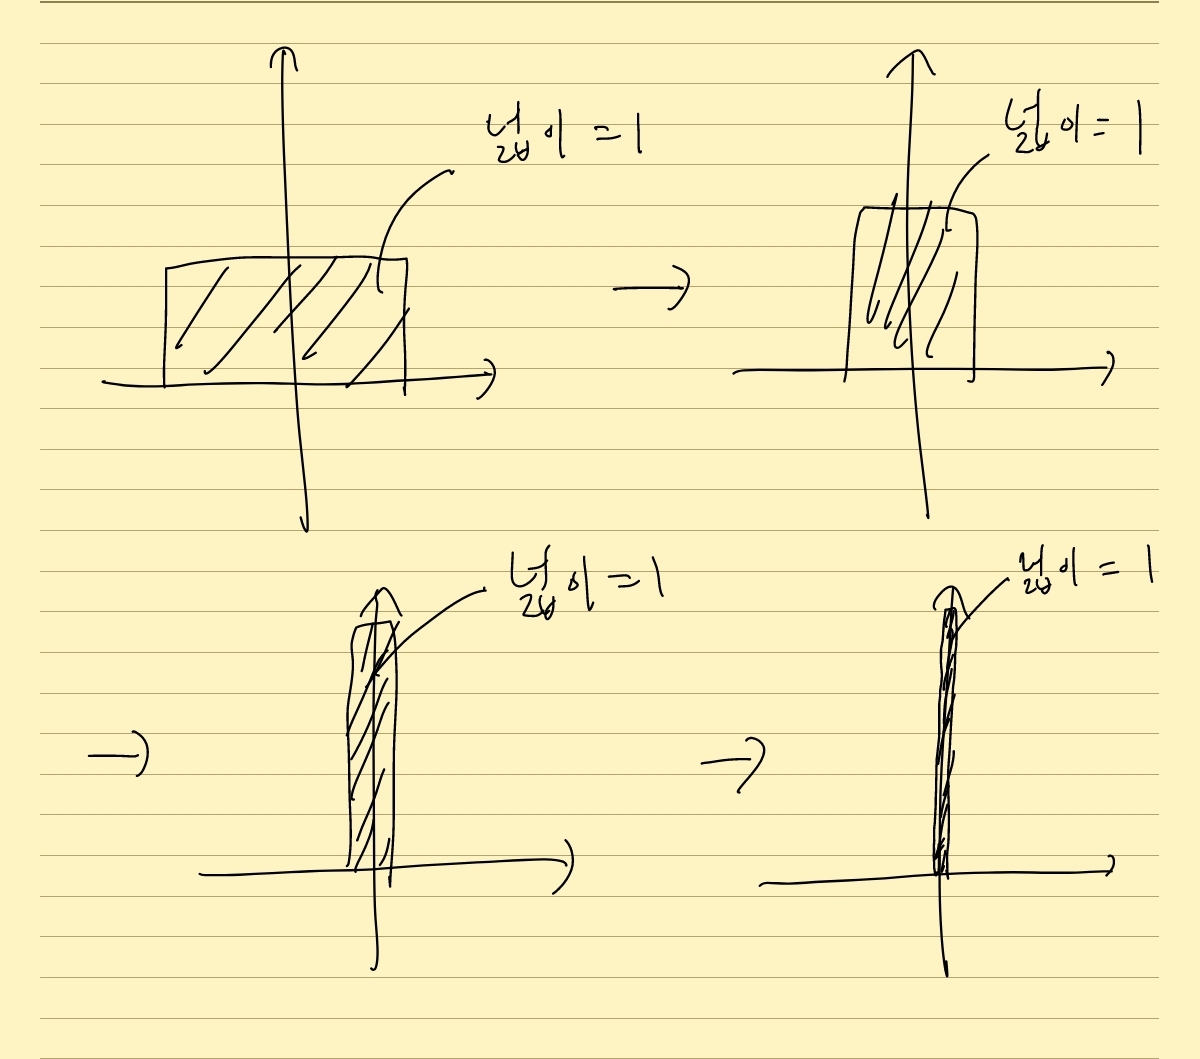 넓이 = 1
넓이 = 1
넓이 = 1
넓이 = 1